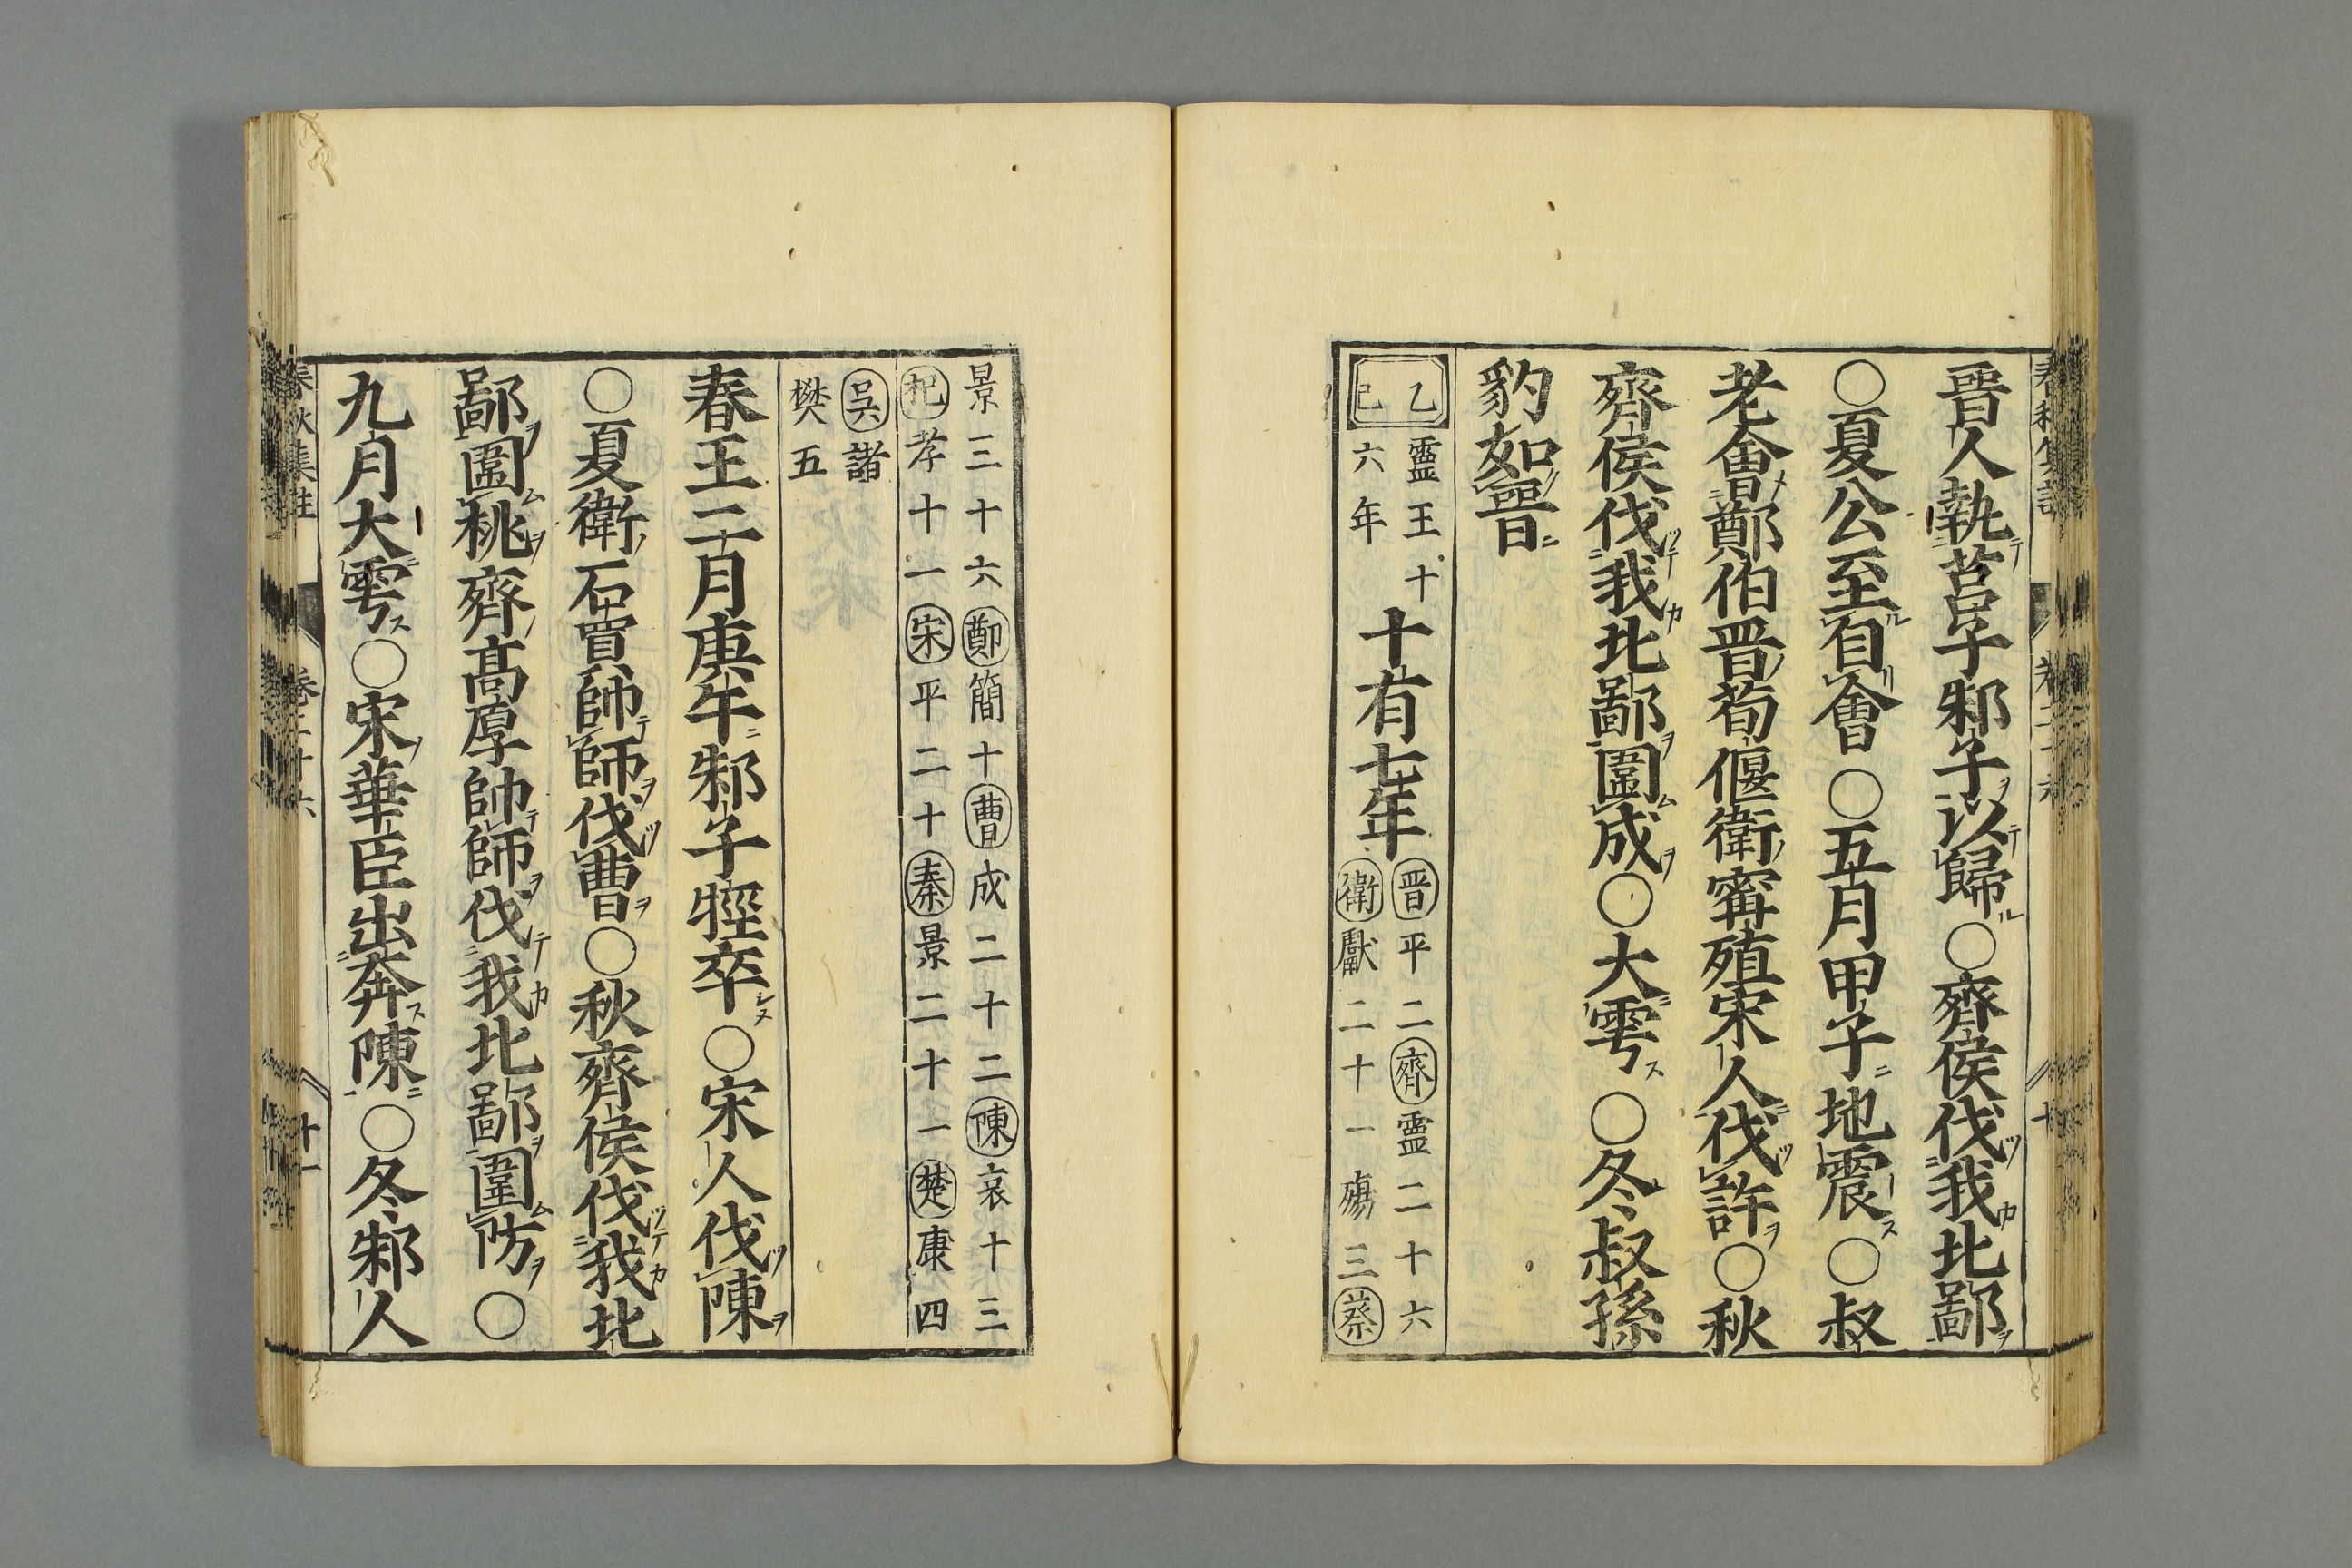 晉人執莒子邾子以歸○齊侯伐我北鄙
○夏公至自會○五月甲子地震○叔
老會鄭伯晉荀偃衛甯殖宋人伐許○秋
齊侯伐我北鄙圍成○大雩○冬叔孫
豹如晉
乙巳
靈王十六年
十有七年
晉平二齊靈二十六
衛獻二十一殤三蔡
景三十六鄭簡十曹成二十二陳哀十三
杞孝十一宋平二十秦景二十一楚康四
吳諸樊五
春王二月庚午邾子牼卒○宋人伐陳
○夏衛石買帥師伐曹○秋齊侯伐我北
鄙圍桃齊高厚帥師伐我北鄙圍防○
九月大雩○宋華臣出奔陳○冬邾人
春秋集註 卷二十六 十一